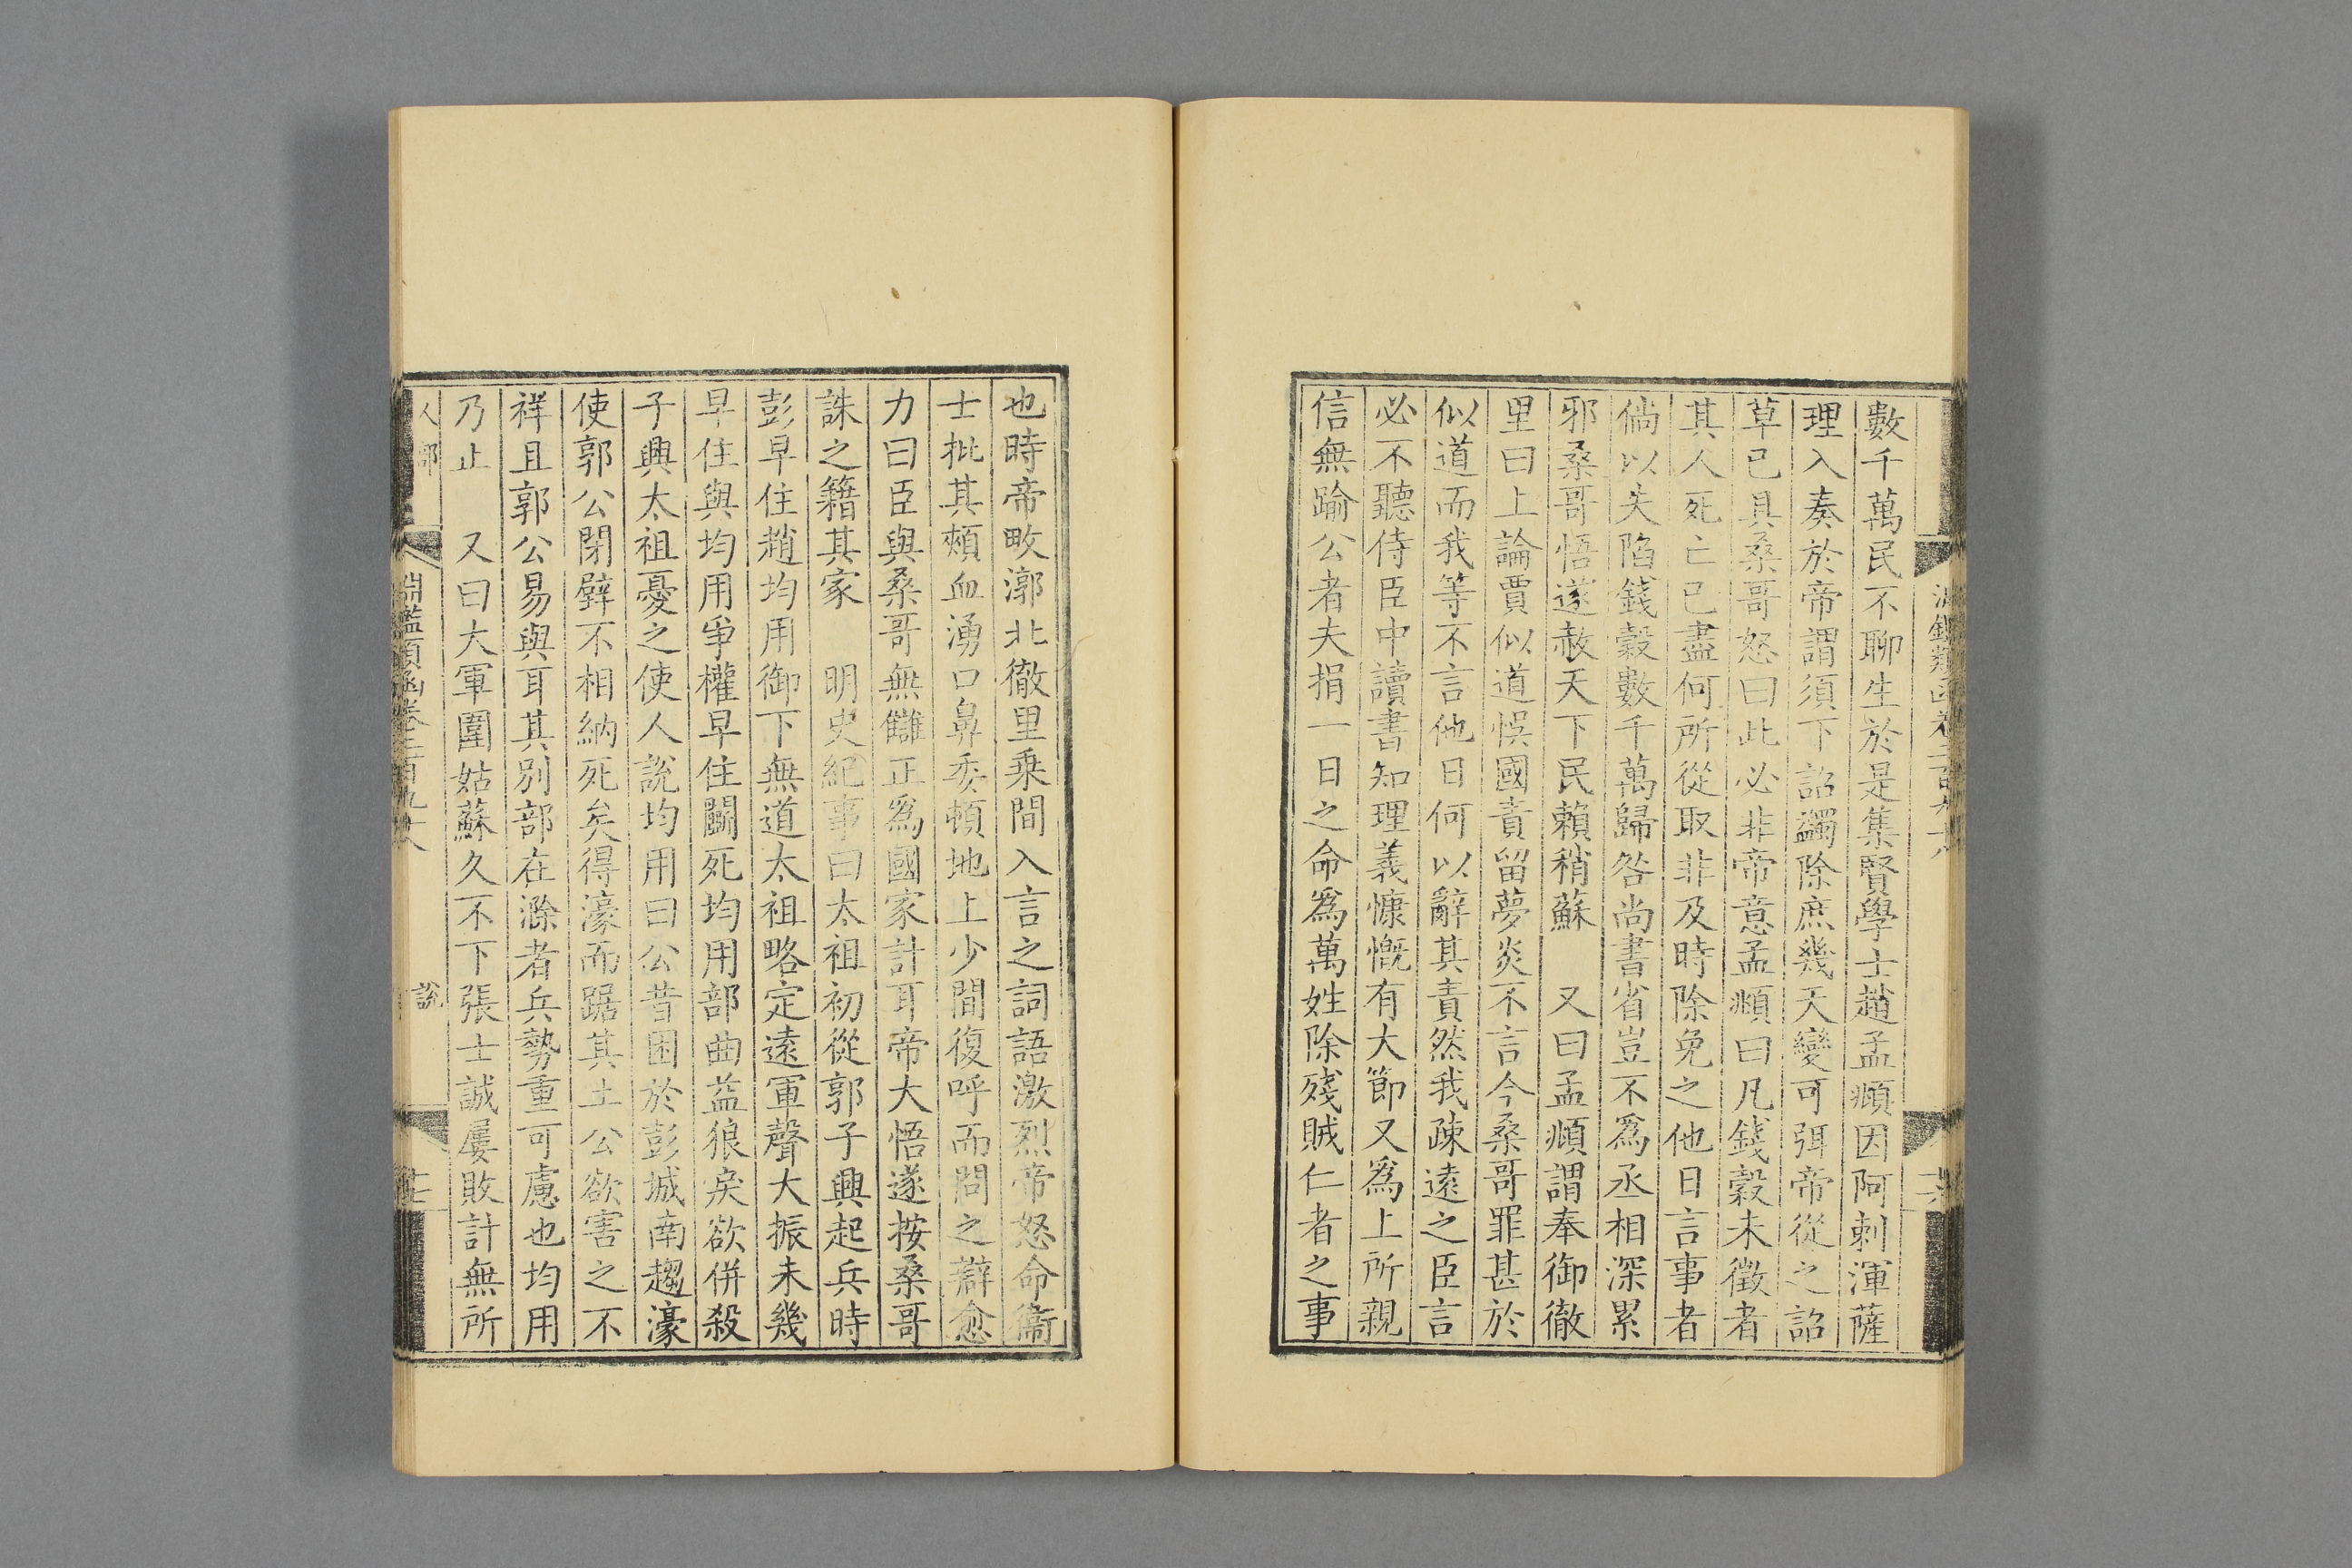 數千萬民不聊生於是集賢學士趙孟頫因阿剌渾薩
理入奏於帝謂須下詔蠲除庶幾天變可弭帝從之詔
草已具桑哥怒曰此必非帝意孟頫曰凡錢穀未徵者
其人死亡已盡何所從取非及時除免之他日言事者
倘以失陷錢穀數千萬歸咎尚書省豈不爲丞相深累
邪桑哥悟遂赦天下民賴稍蘇 又曰孟頫謂奉御徹
里曰上論賈似道悞國責留夢炎不言今桑哥罪甚於
似道而我等不言他日何以辭其責然我疎遠之臣言
必不聽侍臣中讀書知理義慷慨有大節又爲上所親
信無踰公者夫捐一日之命爲萬姓除殘賊仁者之事
也時帝畋漷北徹里乗間入言之詞語激烈帝怒命衞
士批其頰血湧口鼻委頓地上少間復呼而問之辯愈
力曰臣與桑哥無讎正爲國家計耳帝大悟遂按桑哥
誅之籍其家 明史紀事曰太祖初從郭子興起兵時
彭早住趙均用御下無道太祖略定遠軍聲大振未幾
早住與均用爭權早住鬭死均用部曲益狼戾欲併殺
子興太祖憂之使人說均用曰公昔困於彭城南趨濠
使郭公閉壁不相納死矣得濠而踞其土公欲害之不
祥且郭公易與耳其別部在滁者兵勢重可慮也均用
乃止 又曰大軍圍姑蘇久不下張士誠屢敗計無所
人部 淵鑑類函卷二百九十八 說